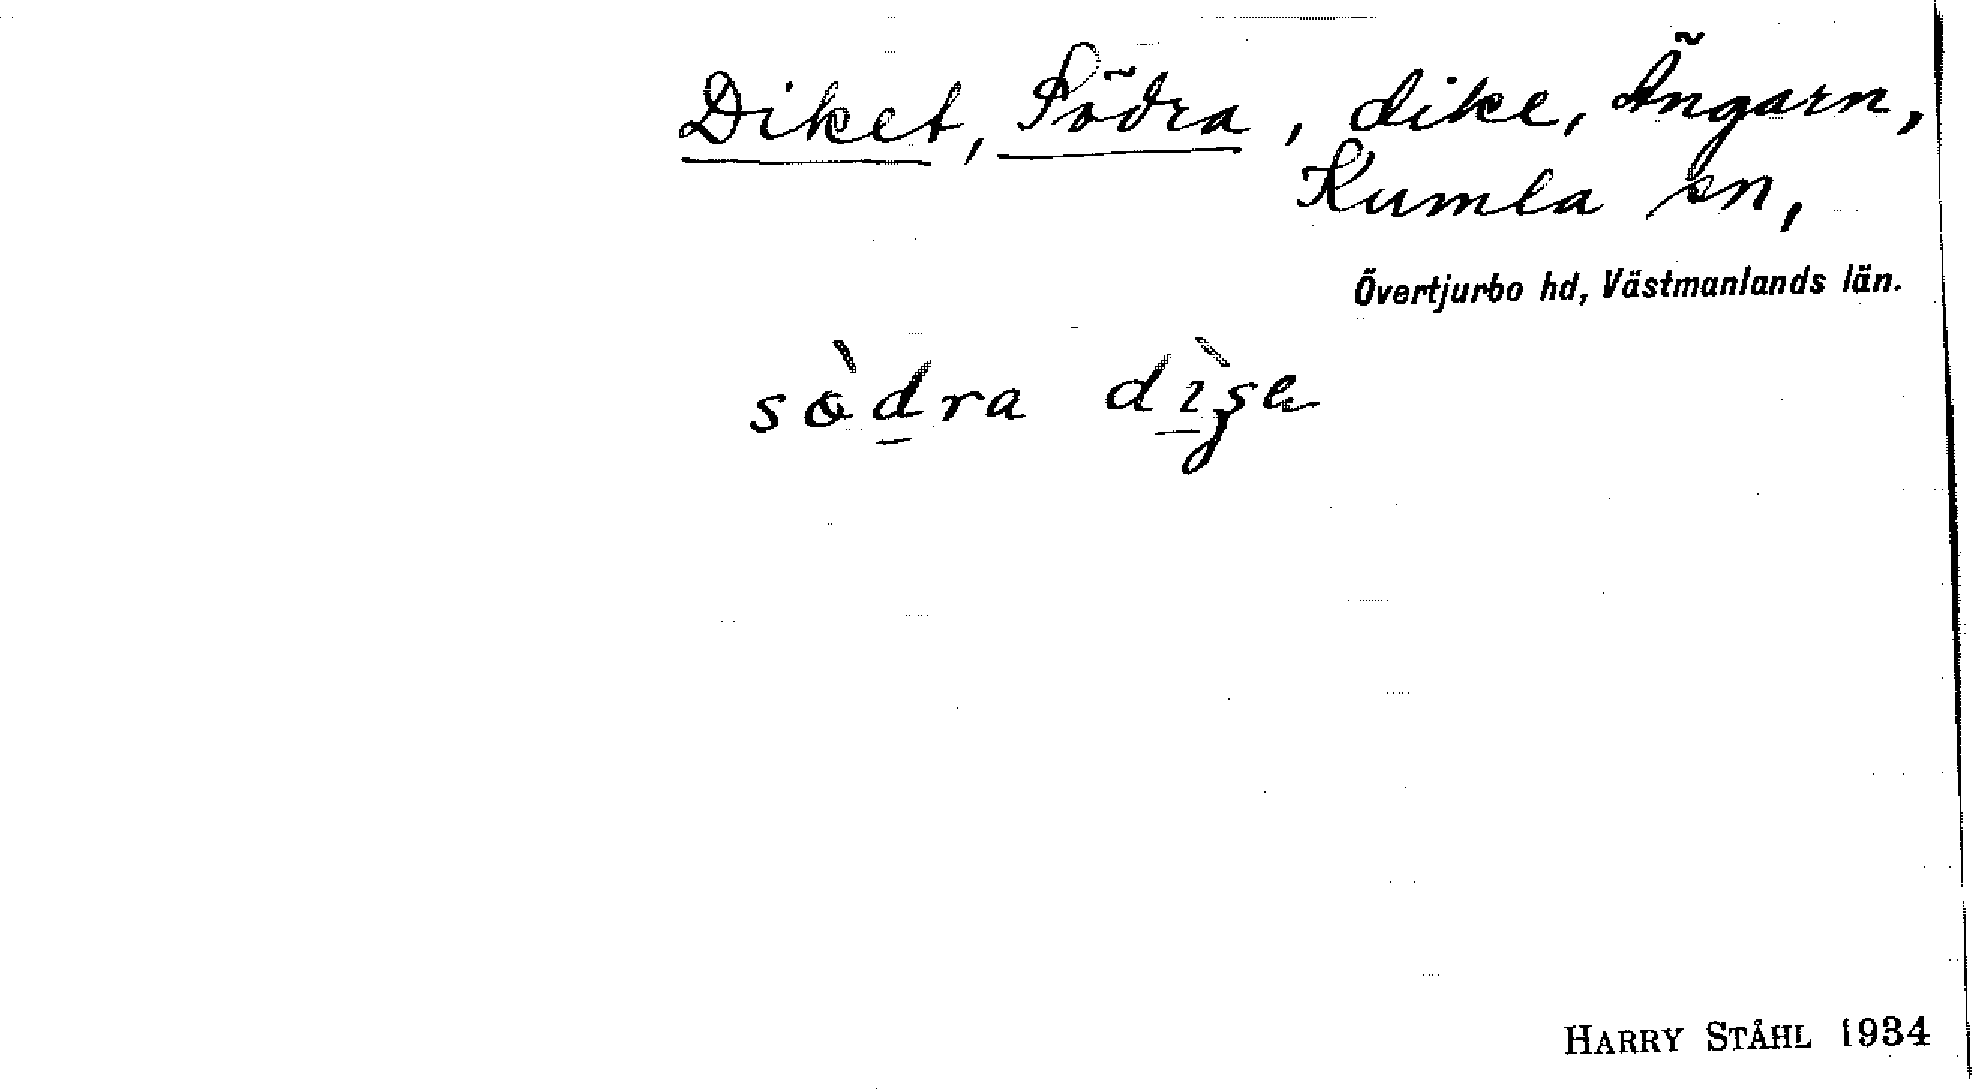 Diket, Södra, dike, Ängarn,
Kumla sn,
Övertjurbo hd, Västmanlands län.
sòdra
HARRY STÅHL 1934